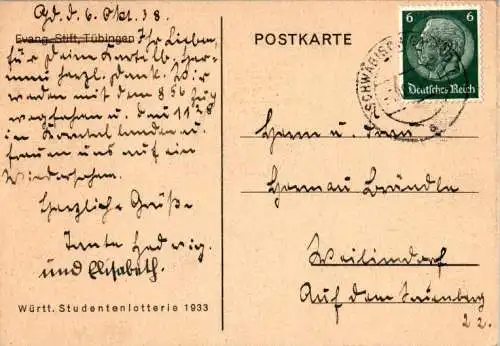 Gd. d. 6. Okt. 38.
Evang. Stift, Tübingen Ihr Lieben,
für Deine Karte lb. Her-
mann herzl. Dank. Wir
werden mit dem 8 56 Zug
wegfahren u. dau 11 28
in Korntal landen u.
freuen uns auf ein
Wiedersehen.
Herzliche Grüße
Tante Hedwig.
und Elisabeth.
Württ. Studentenlotterie 1933
POSTKARTE
6 6
Deutsches Reich
SCHWÄBISCH
Herrn u. Frau
Hermann Brändle
Weilimdorf
Auf dem
22.